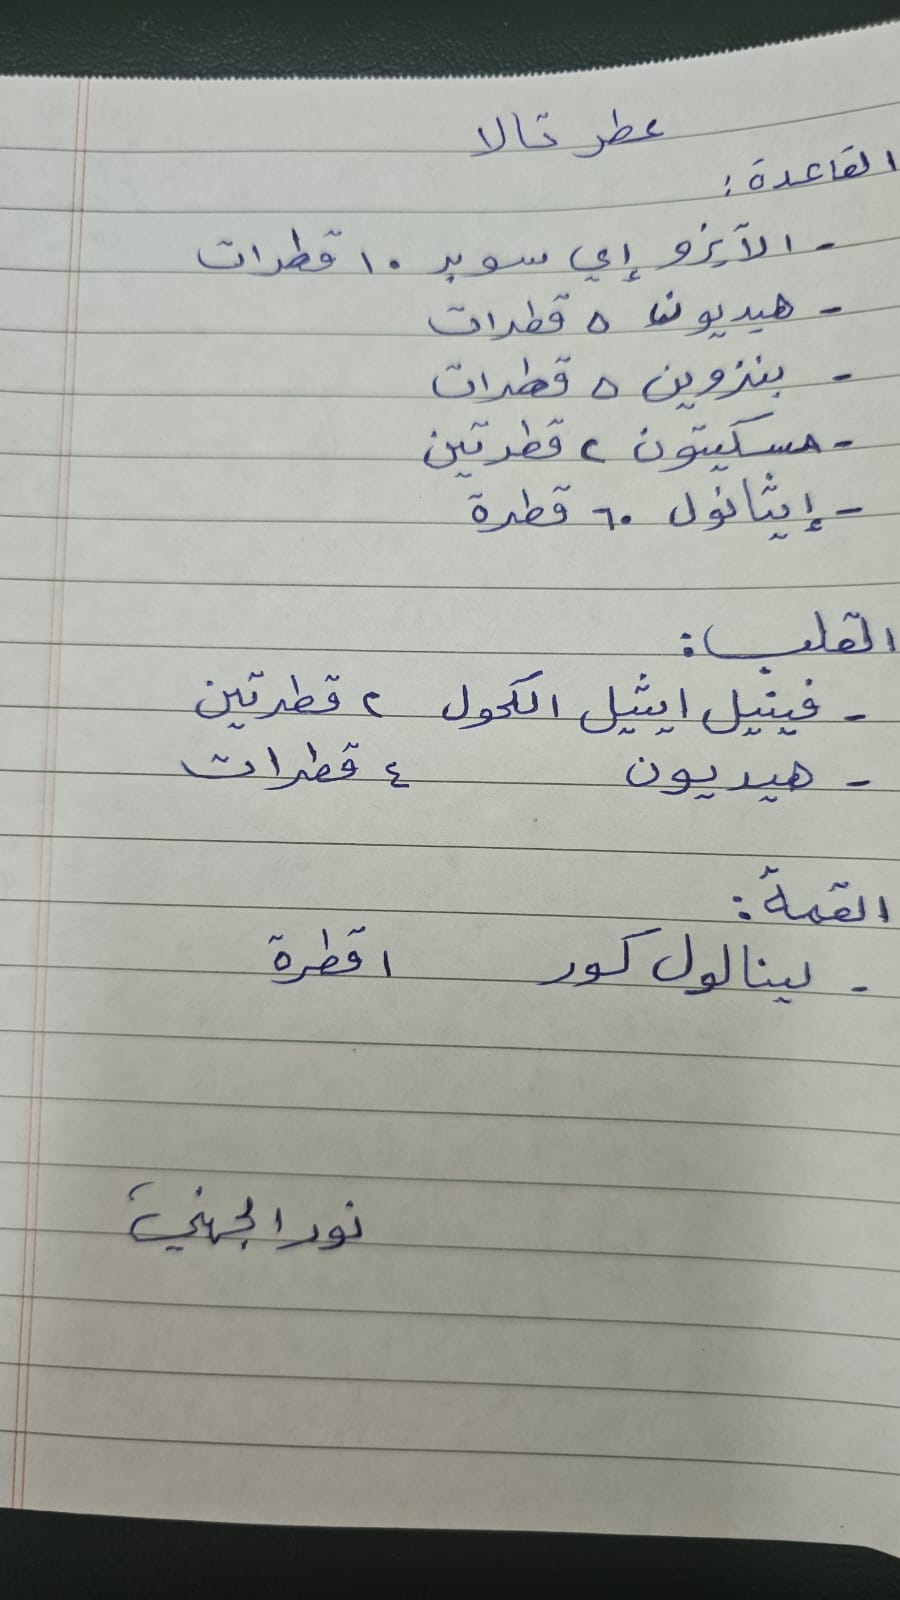 عطر تالا
القاعدة:
- الآيزو إي سوبر ١٠ قطرات
- هيديون ٥ قطرات
- بنزوين ٥ قطرات
- مسكيتون ٢ قطرتين
- إيثانول ٦٠ قطرة
القلب:
- فينيل ايثيل الكحول ٢ قطرتين
- هيديون ٤ قطرات
القمة:
- لينالول كور ١ قطرة
نور الجهني